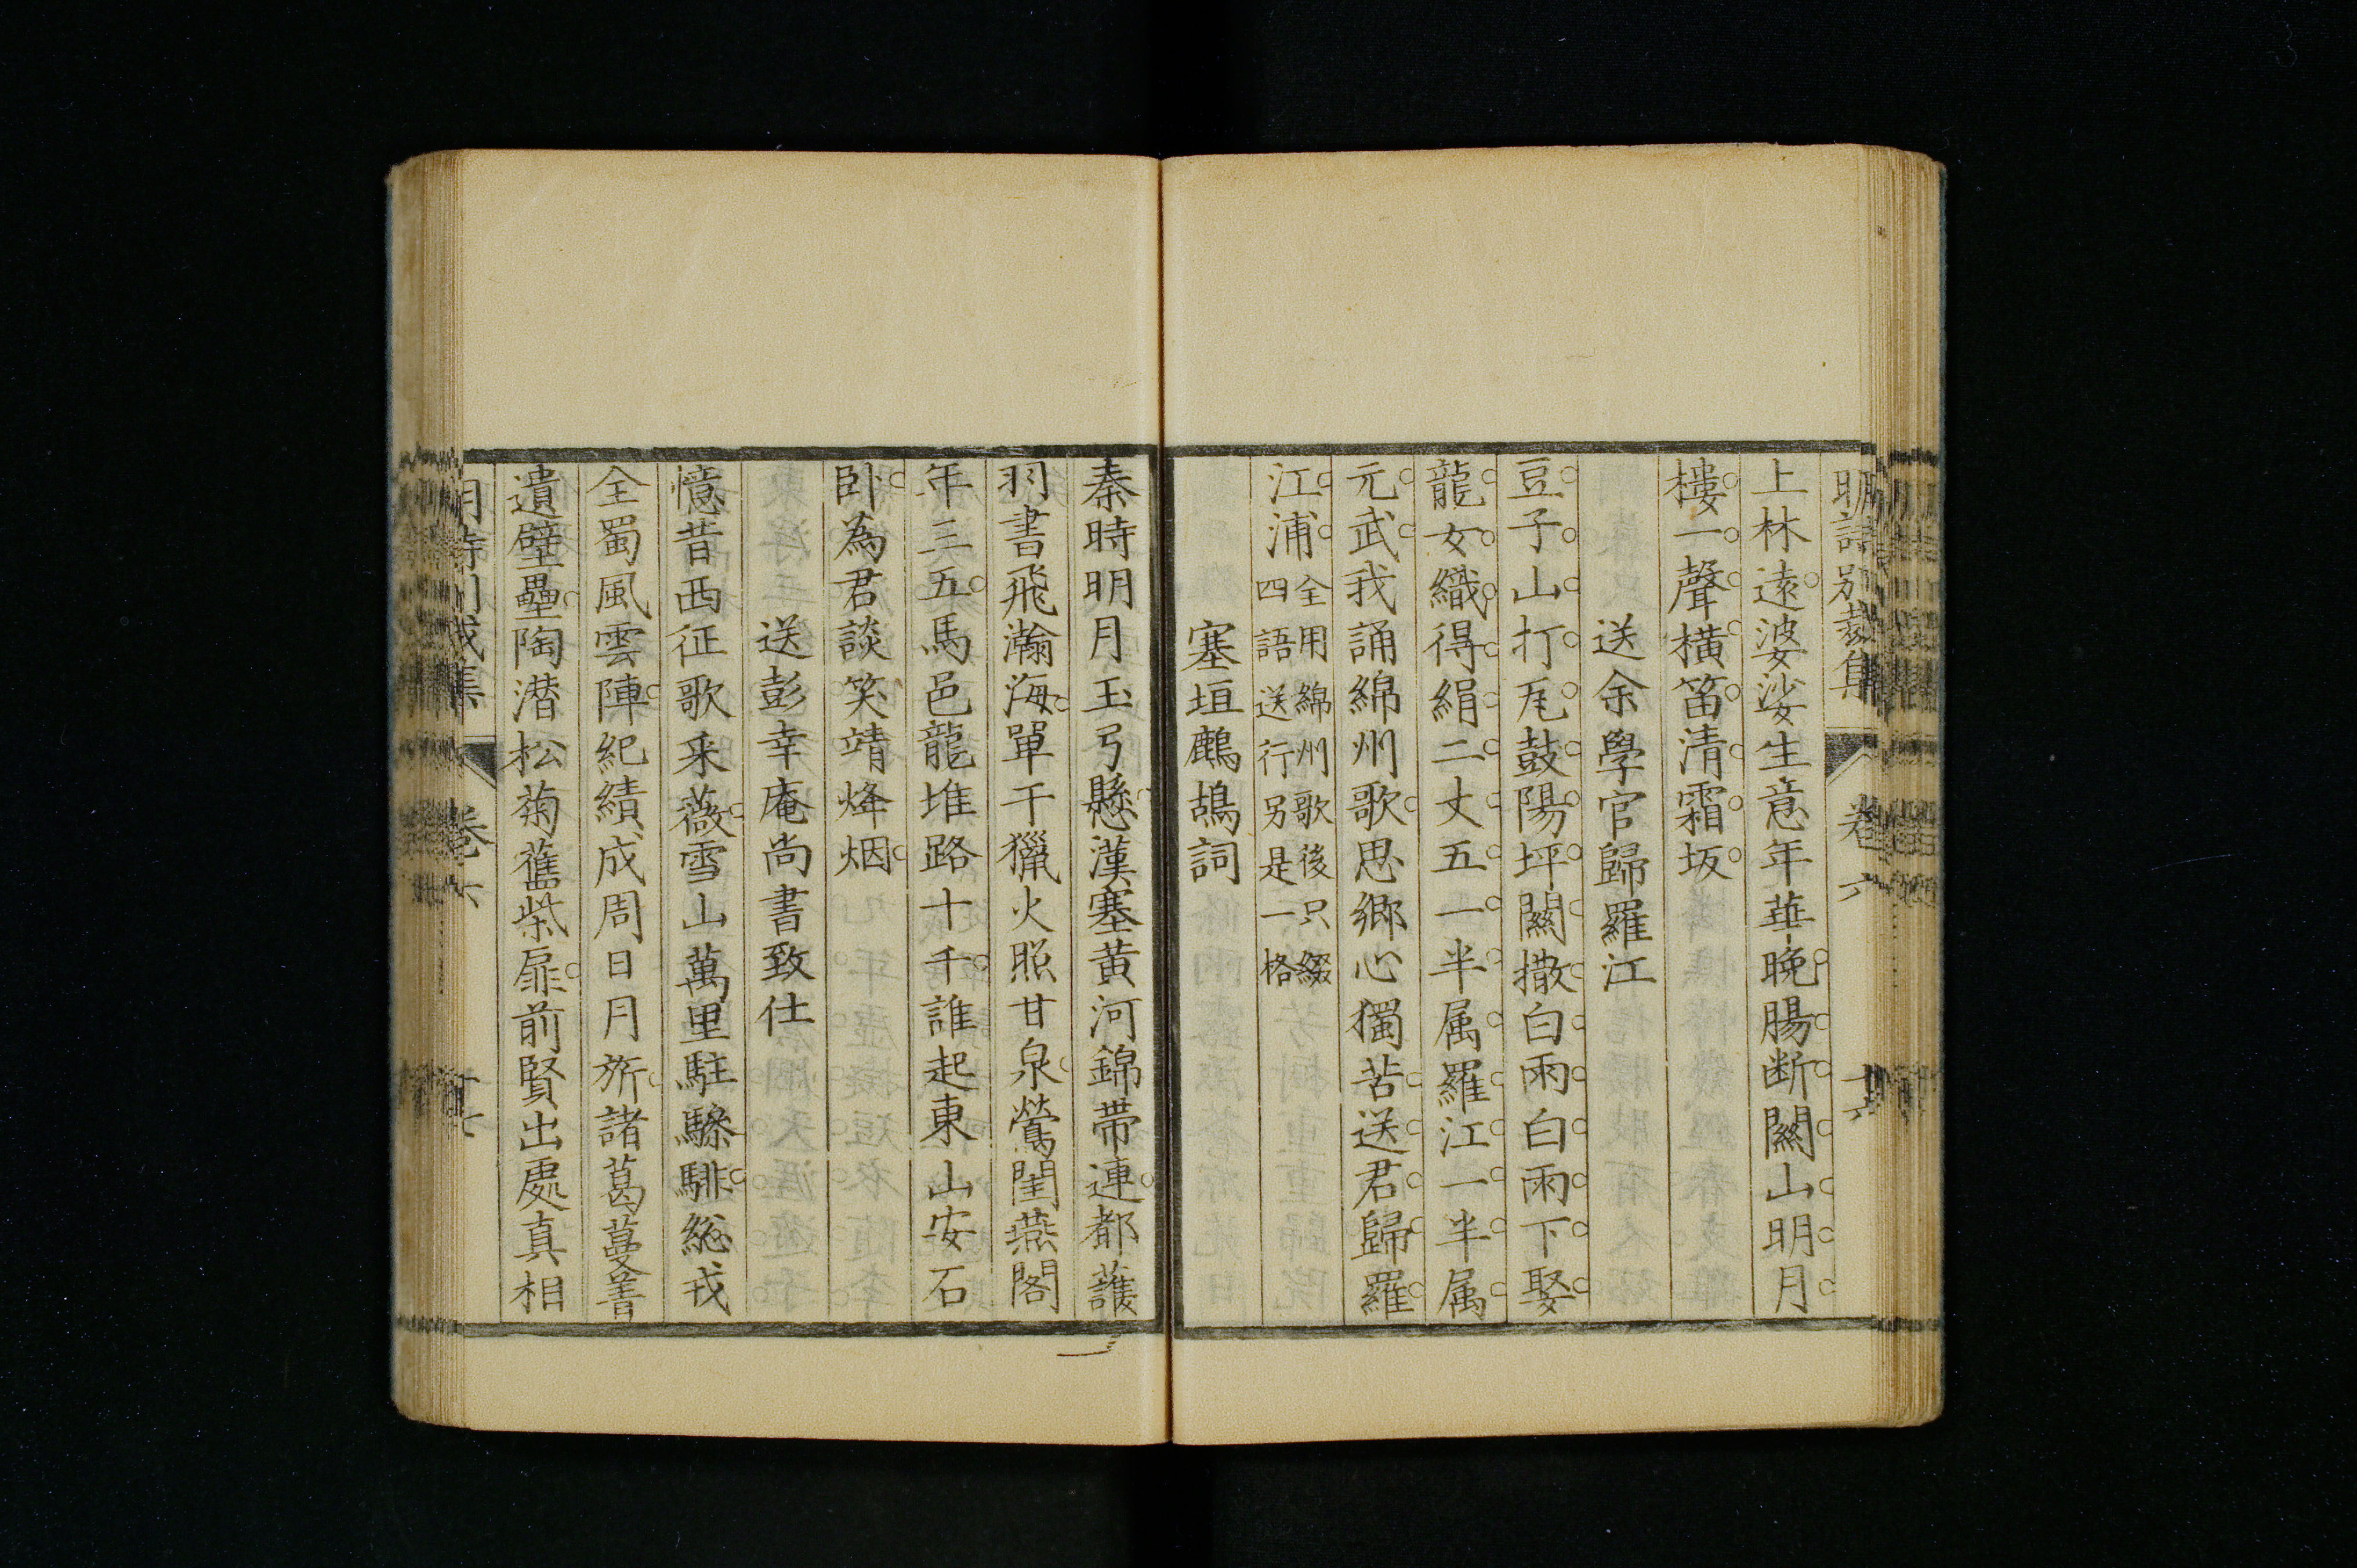 明詩別裁集 卷六 十六
上林遠婆娑生意年華晚腸断關山明月
樓一聲橫笛清霜坂
送余學官歸羅江
豆子山打瓦鼓陽坪關撒白雨白雨下娶
龍女織得絹二丈五一半属羅江一半属
元武我誦綿州歌思鄉心獨苦送君歸羅
江浦
全用綿州歌後只綴
四語送行另是一格
塞垣鷓鴣詞
秦時明月玉弓懸漢塞黄河錦帶連都護
羽書飛瀚海單于獵火照甘泉鶯閨燕閣
年三五馬邑龍堆路十千誰起東山安石
卧為君談笑靖烽烟
送彭幸庵尚書致仕
憶昔西征歌采薇雪山萬里駐驂騑総戎
全蜀風雲陣紀績成周日月旂諸葛蔓菁
遺壁壘陶潜松菊舊柴扉前賢出處真相
卷六